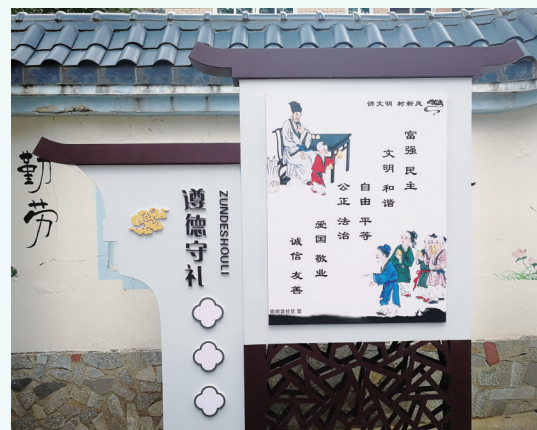 勤劳
遵德守礼
ZUNDESHOULI
讲文明 树新风
富强 民主
文明 和谐
自由 平等
公正 法治
爱国 敬业
诚信 友善